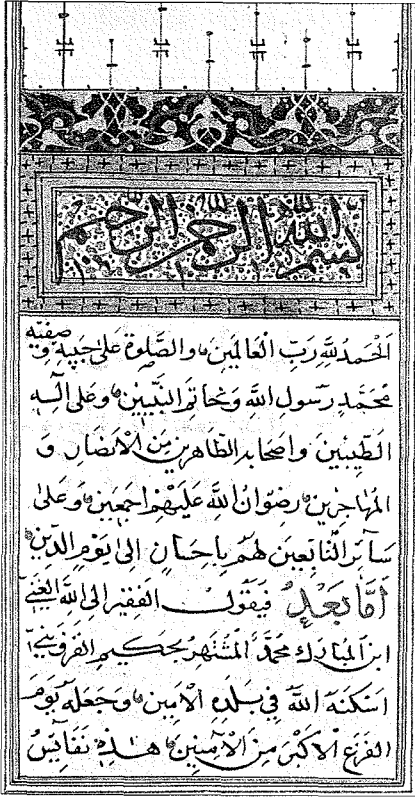 بسم الله الرحمن الرحيم
اَلْحَمْدُ لِلّٰهِ رَبِّ الْعَالَمِينَ وَالصَّلٰوةُ عَلٰى حَبِيبِهِ وَصَفِيِّهِ
مُحَمَّدٍ رَسُولِ اللّٰهِ وَخَاتَمِ النَّبِيِّينَ وَعَلٰى اٰلِهِ
الطَّيِّبِينَ وَاصْحَابِهِ الطَّاهِرِينَ مِنَ الْاَنْصَارِ وَ
الْمُهَاجِرِينَ رِضْوَانُ اللّٰهِ عَلَيْهِمْ اَجْمَعِينَ وَعَلٰى
سَآئِرِ التَّابِعِينَ لَهُمْ بِاِحْسَانٍ اِلٰى يَوْمِ الدِّينِ
اَمَّا بَعْدُ فَيَقُولُ الْفَقِيرُ اِلَى اللّٰهِ الْغَنِيِّ
ابْنُ الْمُبَارَكِ مُحَمَّدٌ الْمُشْتَهَرُ بِحَكِيمِ الْقَزْوِينِيِّ
اَسْكَنَهُ اللّٰهُ فِي بَلَدِهِ الْاَمِينِ وَجَعَلَهُ يَوْمَ
الْفَزَعِ الْاَكْبَرِ مِنَ الْاٰمِنِينَ هٰذِهِ نَفَآئِسُ